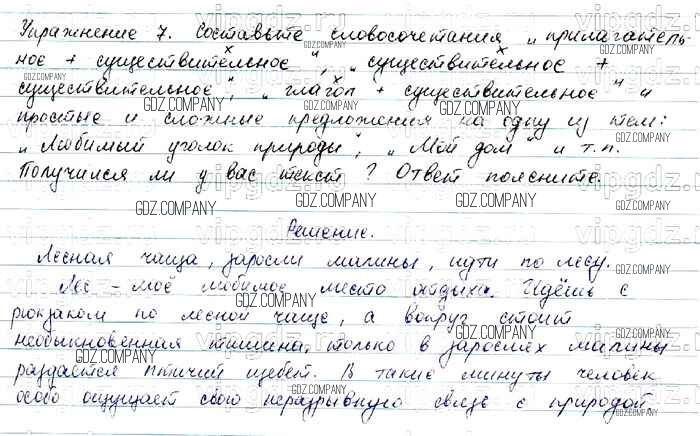 Упражнение 7. Составьте словосочетания „прилагатель-
ное + существительное", „существительное +
существительное", „глагол + существительное" и
простые и сложные предложения на одну из тем:
„Любимый уголок природы", „Мой дом" и т.п.
Получился ли у вас текст? Ответ поясните.
Решение.
Лесная чаща, заросли малины, идти по лесу.
Лес – моё любимое место отдыха. Идёшь с
рюкзаком по лесной чаще, а вокруг стоит
необыкновенная тишина, только в зарослях малины
раздаётся птичий щебет. В такие минуты человек
особо ощущает свою неразрывную связь с природой.